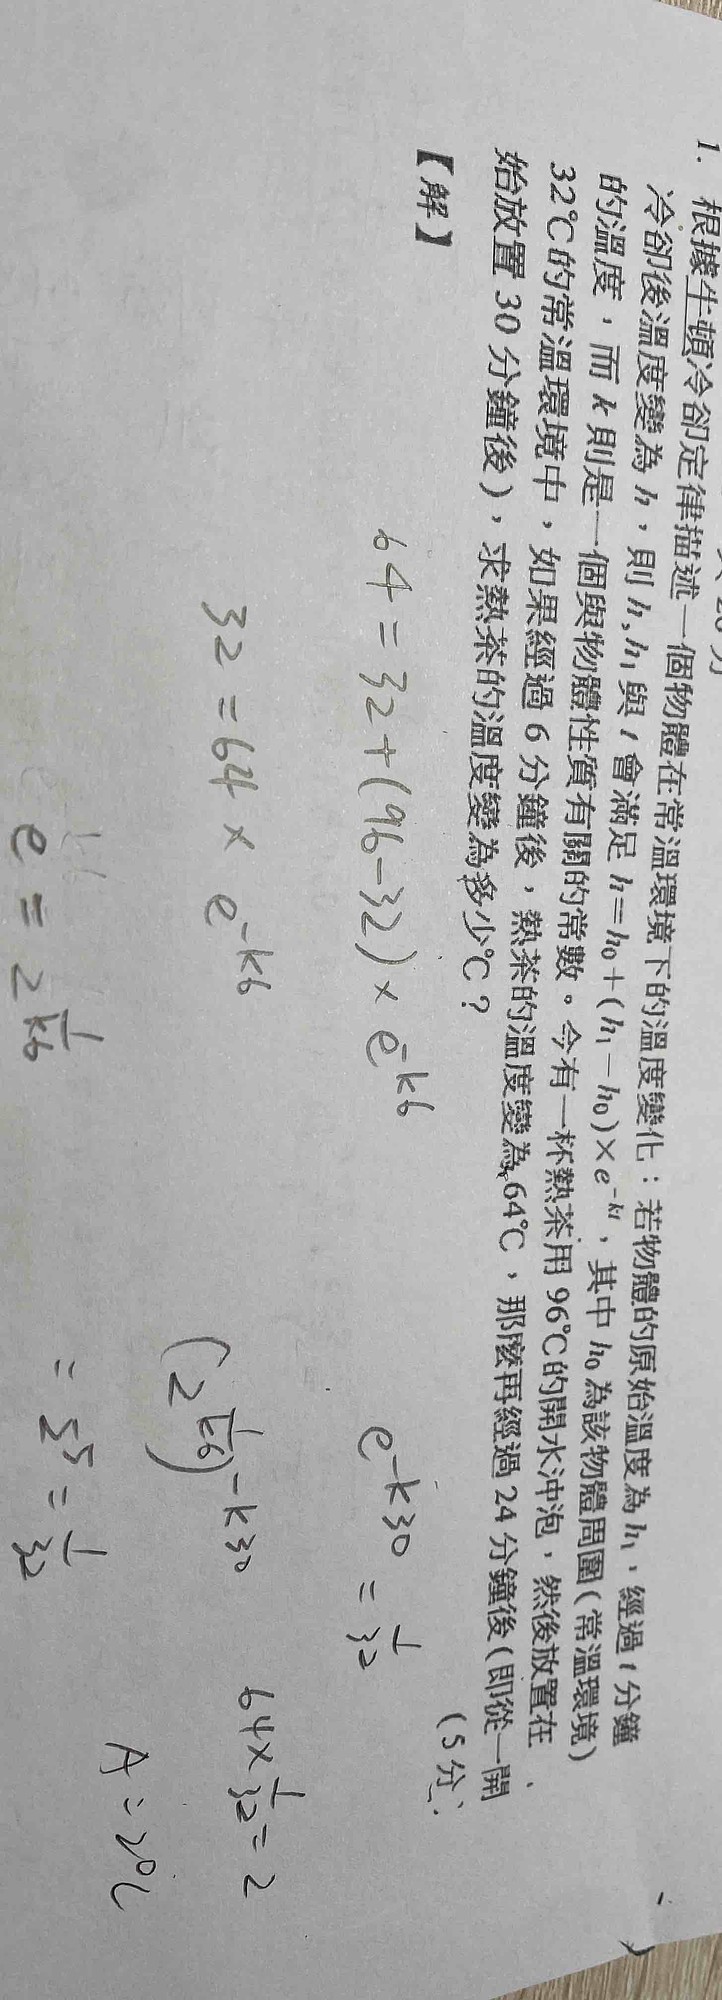 1. 根據牛頓冷卻定律描述一個物體在常溫環境下的溫度變化：若物體的原始溫度為 h₁，經過 t 分鐘
冷卻後溫度變為 h，則 h, h₁ 與 t 會滿足 h=h₀+(h₁−h₀)×e⁻ᵏᵗ，其中 h₀ 為該物體周圍(常溫環境)
的溫度，而 k 則是一個與物體性質有關的常數。今有一杯熱茶用 96℃的開水沖泡，然後放置在
32℃的常溫環境中，如果經過 6 分鐘後，熱茶的溫度變為 64℃，那麼再經過 24 分鐘後(即從一開
始放置 30 分鐘後)，求熱茶的溫度變為多少℃？
(5 分)
【解】
64 = 32 + (96−32) × e^-k6
32 = 64 × e^-k6
e = 2^(1/k6)
e^-k30 = 1/32
(2^(1/k6))^-k30
= 2^5 = 1/32
64 × 1/32 = 2
A: 2℃